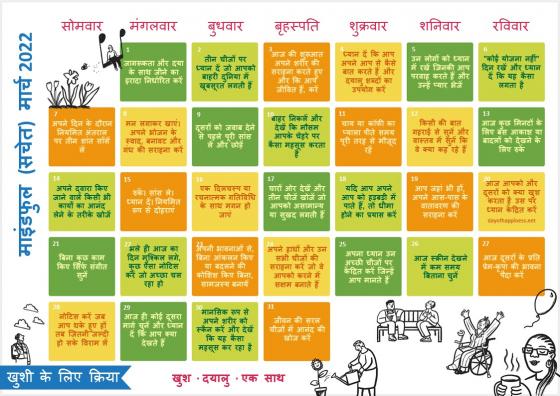 माइंडफुल (सचेत) मार्च 2022
सोमवार मंगलवार बुधवार बृहस्पति शुक्रवार शनिवार रविवार
1
जागरूकता और दया
के साथ जीने का
इरादा निर्धारित करें
2
तीन चीजों पर
ध्यान दें जो आपको
बाहरी दुनिया में
खूबसूरत लगती हैं
3
आज की शुरुआत
अपने शरीर की
सराहना करते हुए
और कि आप
जीवित हैं, करें
4
ध्यान दें कि आप
अपने आप से कैसे
बात करते हैं और
दयालु शब्दों का
उपयोग करें
5
उन लोगों को ध्यान
में रखें जिनकी आप
परवाह करते हैं और
उन्हें प्यार भेजें
6
"कोई योजना नहीं"
दिन रखें और ध्यान
दें कि यह कैसा
लगता है
7
अपने दिन के दौरान
नियमित अंतराल
पर तीन शांत सांसें
लें
8
मन लगाकर खाएं।
अपने भोजन के
स्वाद, बनावट और
गंध की सराहना करें
9
दूसरों को जवाब देने
से पहले पूरी सांस
लें और छोड़ें
10
बाहर निकलें और
देखें कि मौसम
आपके चेहरे पर
कैसा महसूस करता
है
11
चाय या कॉफी का
प्याला पीते समय
पूरी तरह से मौजूद
रहें
12
किसी की बात
गहराई से सुनें और
वास्तव में सुनें कि
वे क्या कह रहे हैं
13
आज कुछ मिनटों के
लिए बस आकाश या
बादलों को देखने के
लिए रुकें
14
अपने द्वारा किए
जाने वाले किसी भी
कार्य का आनंद
लेने के तरीके खोजें
15
रुकें। सांस लें।
ध्यान दें। नियमित
रूप से दोहराएं
16
एक दिलचस्प या
रचनात्मक गतिविधि
के साथ मगन हो
जाएं
17
चारों ओर देखें और
तीन चीजें खोजें जो
आपको असामान्य
या सुखद लगती हैं
18
यदि आप अपने
आप को हड़बड़ी में
पाते हैं, तो धीमा
होने का प्रयास करें
19
आप जहां भी हों,
अपने आस-पास के
वातावरण की
सराहना करें
20
आज आपको और
दूसरों को क्या खुश
करता है उस पर
ध्यान केंद्रित करें
dayofhappiness.net
21
बिना कुछ काम
किए सिर्फ संगीत
सुनें
22
भले ही आज का
दिन मुश्किल लगे,
कुछ ऐसा नोटिस
करें जो अच्छा चल
रहा हो
23
अपनी भावनाओं से,
बिना आंकलन किए
या बदलने की
कोशिश किए बिना,
सामंजस्य बनायें
24
अपने हाथों और उन
सभी चीजों की
सराहना करें जो वे
आपको करने में
सक्षम बनाते हैं
25
अपना ध्यान उन
अच्छी चीजों पर
केंद्रित करें जिन्हें
आप मानते हैं
26
आज स्क्रीन देखने
में कम समय
बिताना चुनें
27
आज दूसरों के प्रति
प्रेम-कृपा की भावना
पैदा करें
28
नोटिस करें जब
आप थके हुए हों
तब जितनी जल्दी
हो सके विराम लें
29
आज ही कोई दूसरा
मार्ग चुनें और ध्यान
दें कि आप क्या
देखते हैं
30
मानसिक रूप से
अपने शरीर को
स्कैन करें और देखें
कि यह कैसा
महसूस कर रहा है
31
जीवन की सरल
चीजों में आनंद की
खोज करें
खुशी के लिए क्रिया
खुश · दयालु · एक साथ